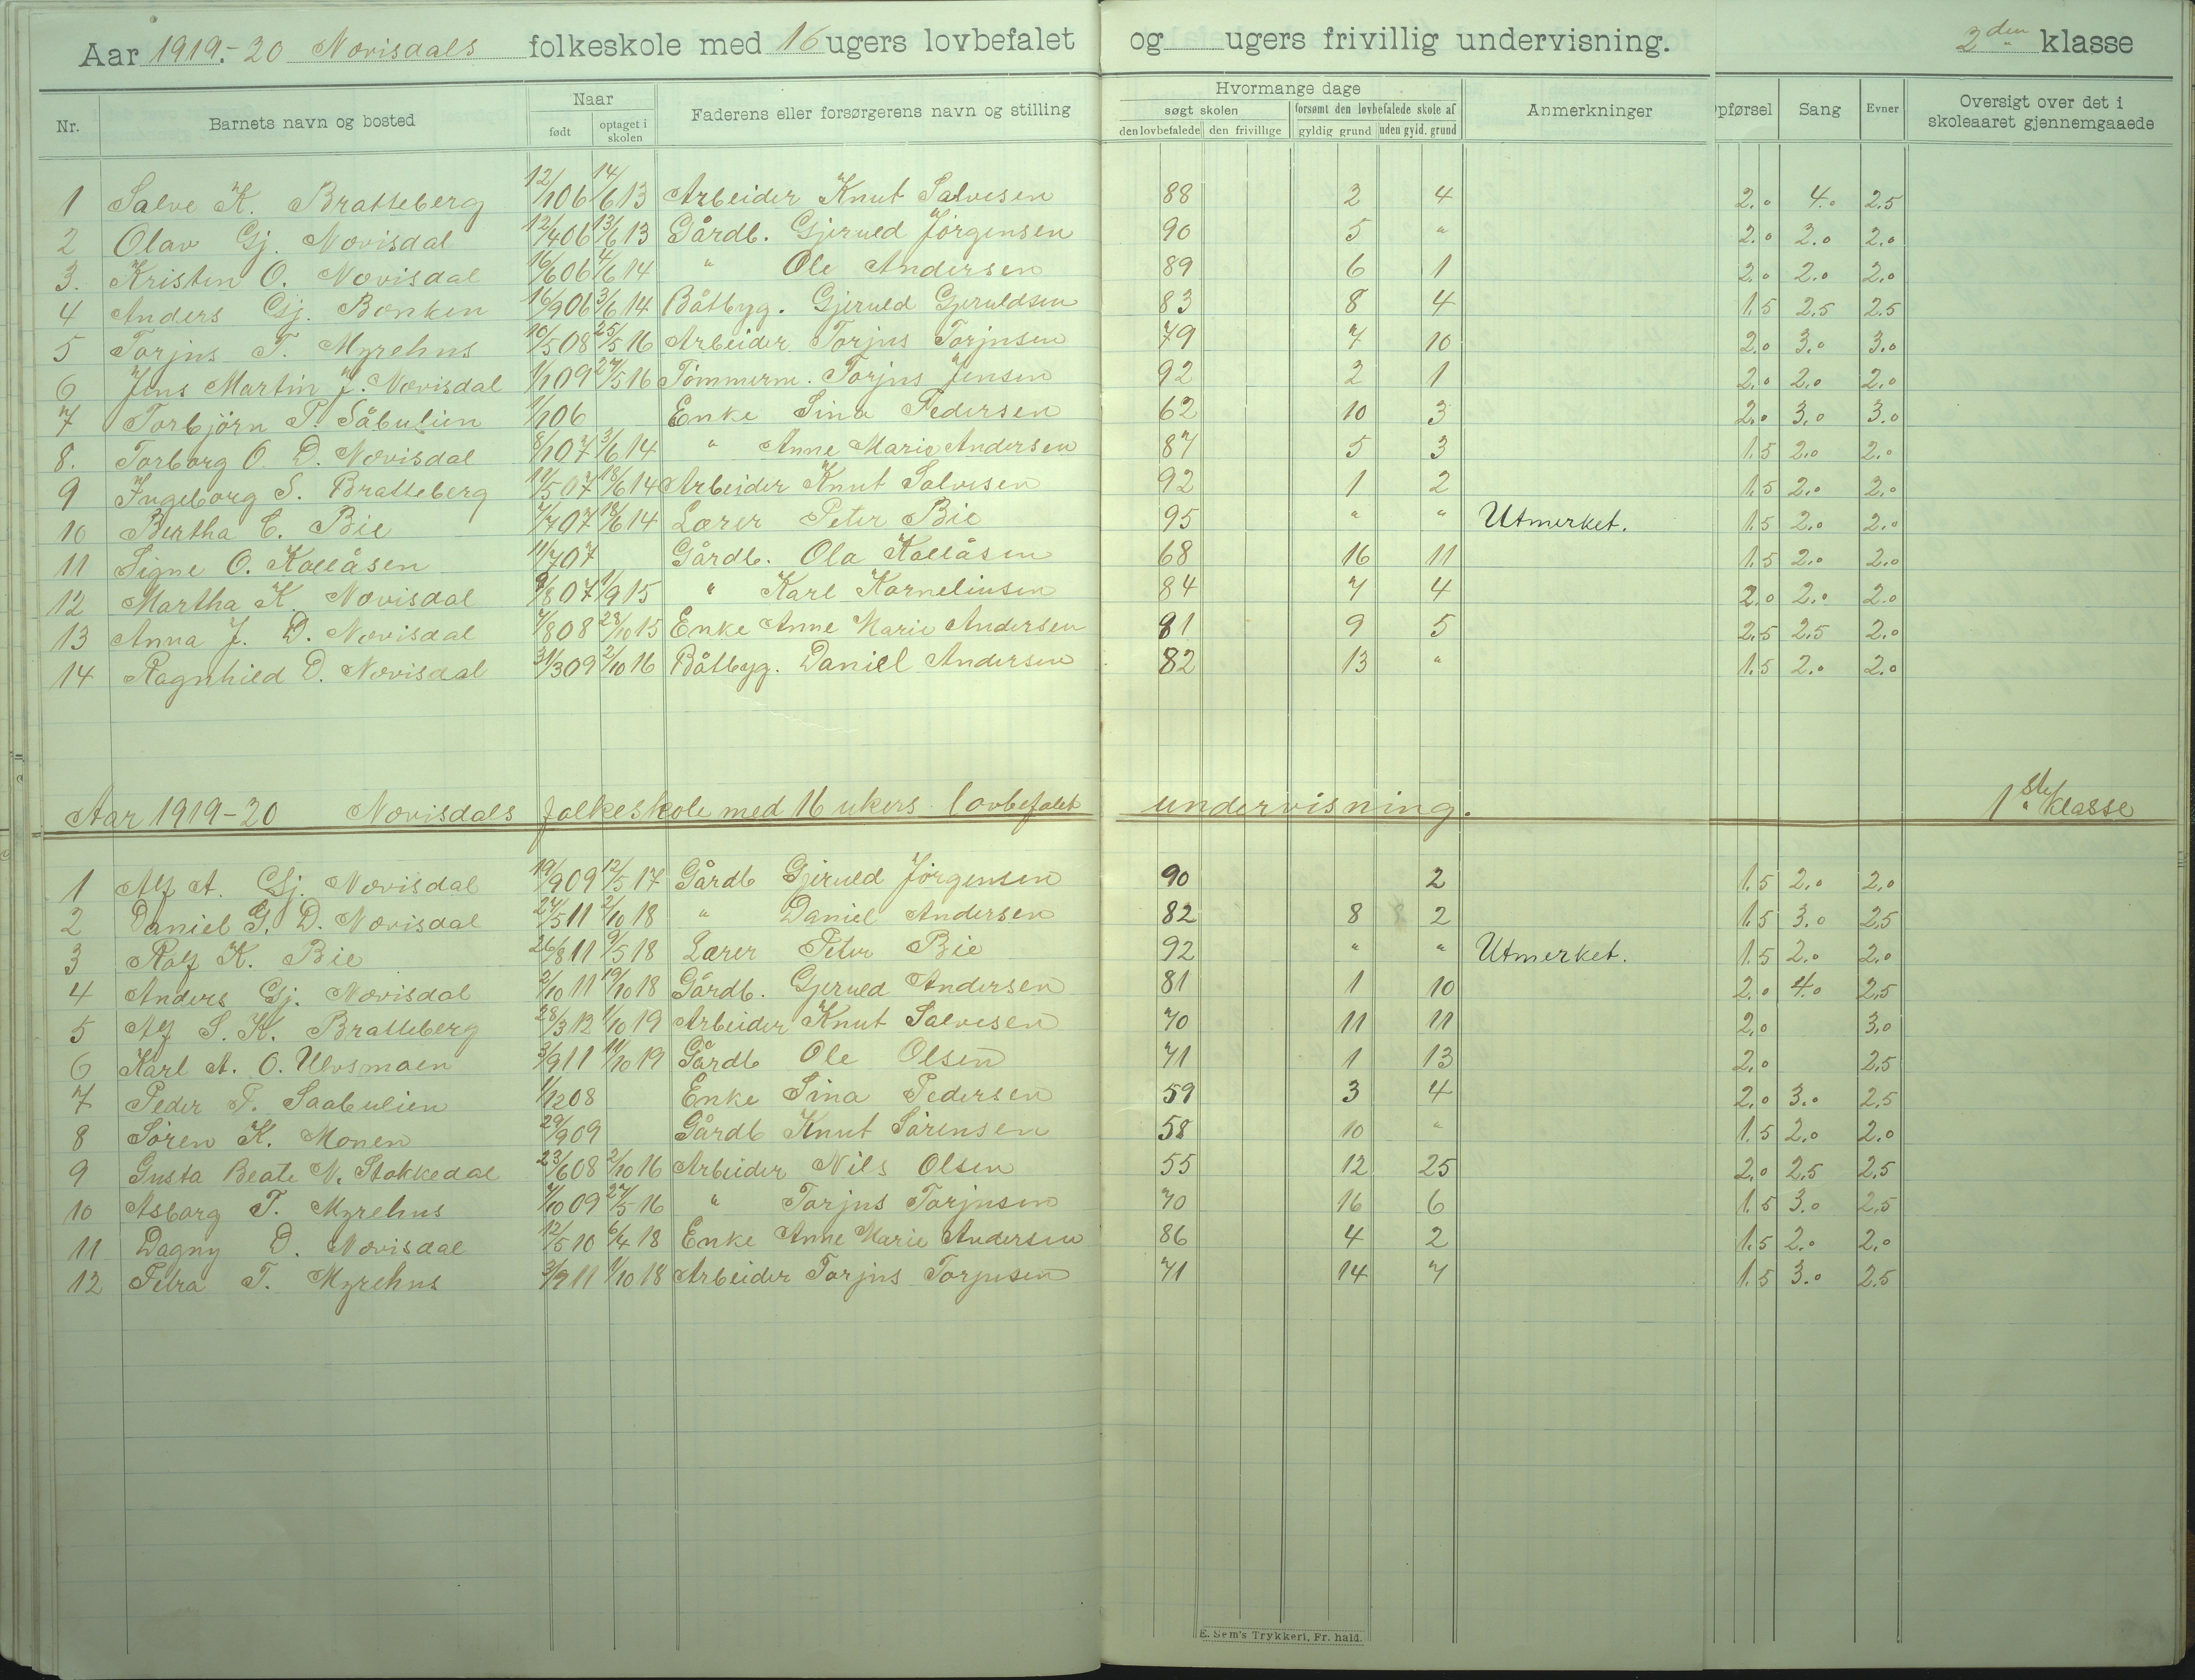 Aar 1919.-20 Nævisdals folkeskole med 16 ugers lovbefalet og ugers frivillig undervisning. 2den klasse
Nr. Barnets navn og bosted Naar født optaget i skolen Faderens eller forsørgerens navn og stilling Hvormange dage søgt skolen den lovbefalede den frivillige forsømt den lovbefalede skole af gyldig grund uden gyld. grund Anmerkninger pførsel Sang Evner Oversigt over det i skoleaaret gjennemgaaede
1 Salve K. Bratteberg 12/1 06 14/6 13 Arbeider Knut Salvesen 88 2 4 2.0 4.0 2.5
2 Olav Gj. Nævisdal 12/4 06 13/6 13 Gårdb. Gjeruld Jörgensen 90 5 " 2.0 2.0 2.0
3. Kristen O. Nævisdal 16/6 06 4/6 14 " Ole Andersen 89 6 1 2.0 2.0 2.0
4 Anders Gj. Bænken 16/9 06 3/6 14 Båtbyg. Gjeruld Gjeruldsen 83 8 4 1.5 2.5 2.5
5 Torjus T. Myrehus 10/5 08 25/5 16 Arbeider Torjus Torjusen 79 7 10 2.0 3.0 3.0
6 Jens Martin J. Nævisdal 1/1 09 27/5 16 Tömmerm. Torjus Jensen 92 2 1 2.0 2.0 2.0
7 Torbjörn P. Såbulien 1/1 06 Enke Sina Pedersen 62 10 3 2.0 3.0 3.0
8. Torborg O. D. Nævisdal 8/1 07 3/6 14 " Anne Marie Andersen 87 5 3 1.5 2.0 2.0
9 Ingeborg S. Bratteberg 11/5 07 18/6 14 Arbeider Knut Salvesen 92 1 2 1.5 2.0 2.0
10 Bertha C. Bie 7/7 07 18/6 14 Lærer Peter Bie 95 " " Utmerket. 1.5 2.0 2.0
11 Signe O. Kollåsen 11/7 07 Gårdb. Ola Kollåsen 68 16 11 1.5 2.0 2.0
12 Martha K. Nævisdal 9/8 07 1/9 15 " Karl Korneliusen 84 7 4 2.0 2.0 2.0
13 Anna J. D. Nævisdal 7/8 08 28/10 15 Enke Anne Marie Andersen 81 9 5 2.5 2.5 2.0
14 Ragnhild D. Nævisdal 31/3 09 2/10 16 Båtbyg. Daniel Andersen 82 13 " 1.5 2.0 2.0
Aar 1919-20 Nævisdals folkeskole med 16 ukers lovbefalet undervisning. 1ste klasse
1 Alf A. Gj. Nævisdal 19/9 09 12/5 17 Gårdb Gjeruld Jörgensen 90 2 1.5 2.0 2.0
2 Daniel G. D. Nævisdal 27/5 11 2/10 18 " Daniel Andersen 82 8 2 1.5 3.0 2.5
3 Rolf K. Bie 26/8 11 9/5 18 Lærer Peter Bie 92 " " Utmerket. 1.5 2.0 2.0
4 Anders Gj. Nævisdal 2/10 11 19/10 18 Gårdb. Gjeruld Andersen 81 1 10 2.0 4.0 2.5
5 Alf S. K. Bratteberg 28/3 12 1/10 19 Arbeider Knut Salvesen 70 11 11 2.0 3.0
6 Karl A. O. Ulvsmoen 3/9 11 11/10 19 Gårdb Ole Olsen 71 1 13 2.0 2.5
7 Peder P. Saabulien 1/12 08 Enke Sina Pedersen 59 3 4 2.0 3.0 2.5
8 Sören K. Monen 29/9 09 Gårdb Knut Sörensen 58 10 " 1.5 2.0 2.0
9 Gusta Beate N. Stokkedal 23/6 08 2/10 16 Arbeider Nils Olsen 55 12 25 2.0 2.5 2.5
10 Asborg T. Myrehus 7/10 09 27/5 16 " Torjus Torjusen 70 16 6 1.5 3.0 2.5
11 Dagny D. Nævisdal 12/5 10 6/4 18 Enke Anne Marie Andersen 86 4 2 1.5 2.0 2.0
12 Petra T. Myrehus 3/9 11 1/10 18 Arbeider Torjus Torjusen 71 14 7 1.5 3.0 2.5
E. Sem's Trykkeri, Fr. hald.